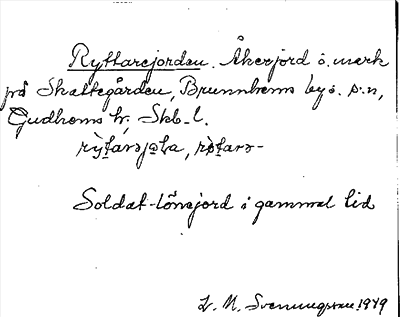 Ryttarejorden. Åkerjord o. merk
på Skattegården, Brunnhems by o. s:n,
Gudhems hr, Skb. l.
Soldat-lönejord i gammal tid
L. M. Svenungsson 1919